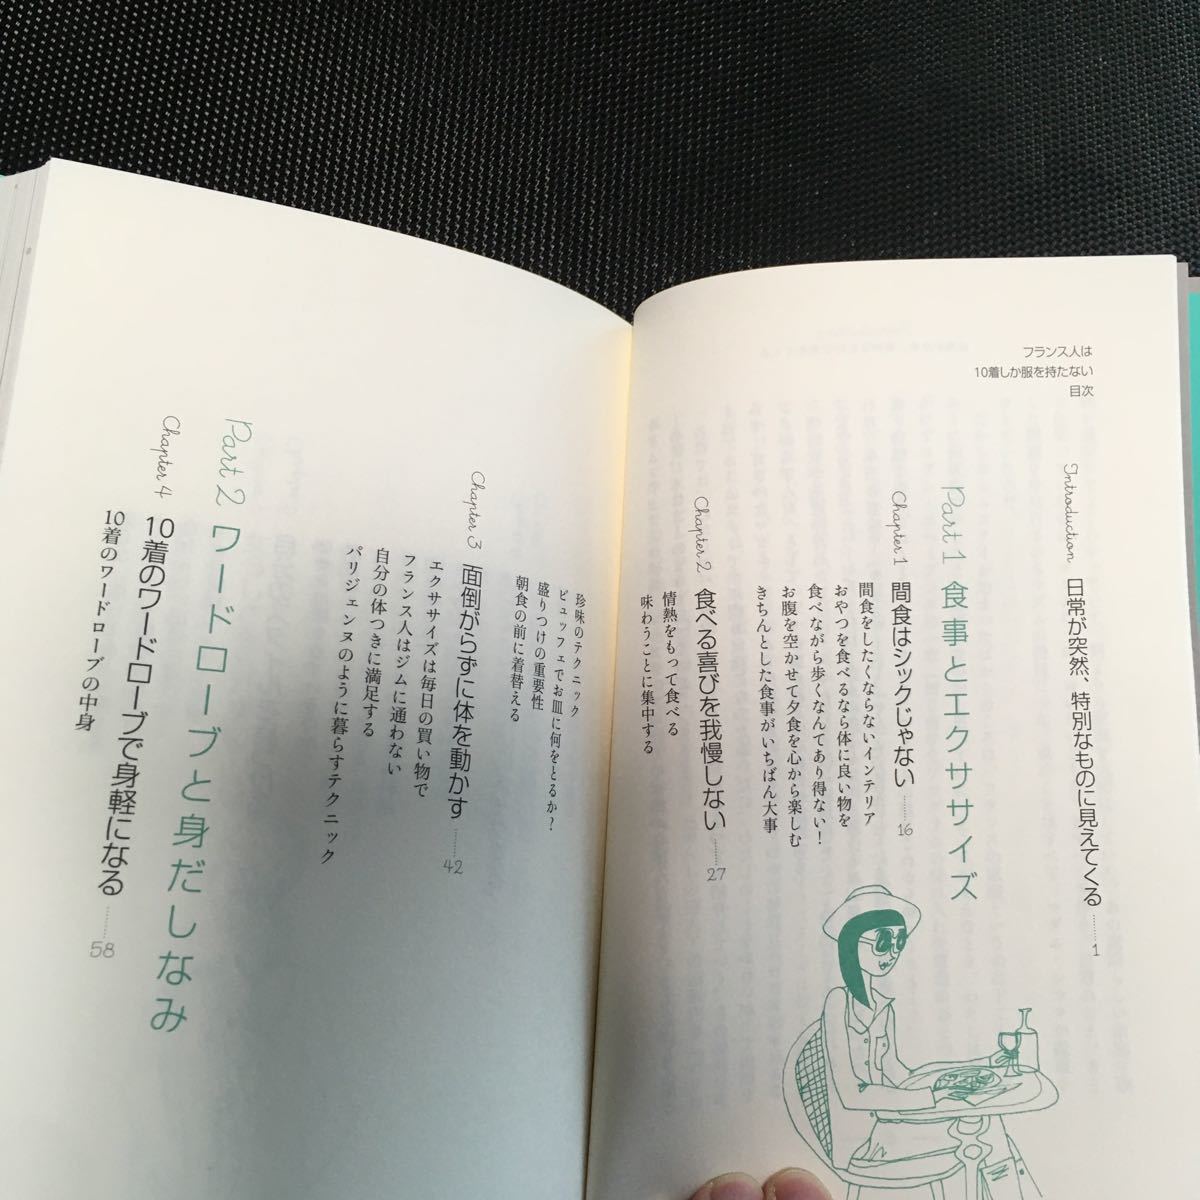 フランス人は
10着しか服を持たない
目次
Introduction 日常が突然、特別なものに見えてくる ……… 1
Part 1 食事とエクササイズ
Chapter 1 間食はシックじゃない ……… 16
間食をしたくならないインテリア
おやつを食べるなら体に良い物を
食べながら歩くなんてあり得ない!
お腹を空かせて夕食を心から楽しむ
きちんとした食事がいちばん大事
Chapter 2 食べる喜びを我慢しない ……… 27
情熱をもって食べる
味わうことに集中する
珍味のテクニック
ビュッフェでお皿に何をとるか?
盛りつけの重要性
朝食の前に着替える
Chapter 3 面倒がらずに体を動かす ……… 42
エクササイズは毎日の買い物で
フランス人はジムに通わない
自分の体つきに満足する
パリジェンヌのように暮らすテクニック
Part 2 ワードローブと身だしなみ
Chapter 4 10着のワードローブで身軽になる ……… 58
10着のワードローブの中身